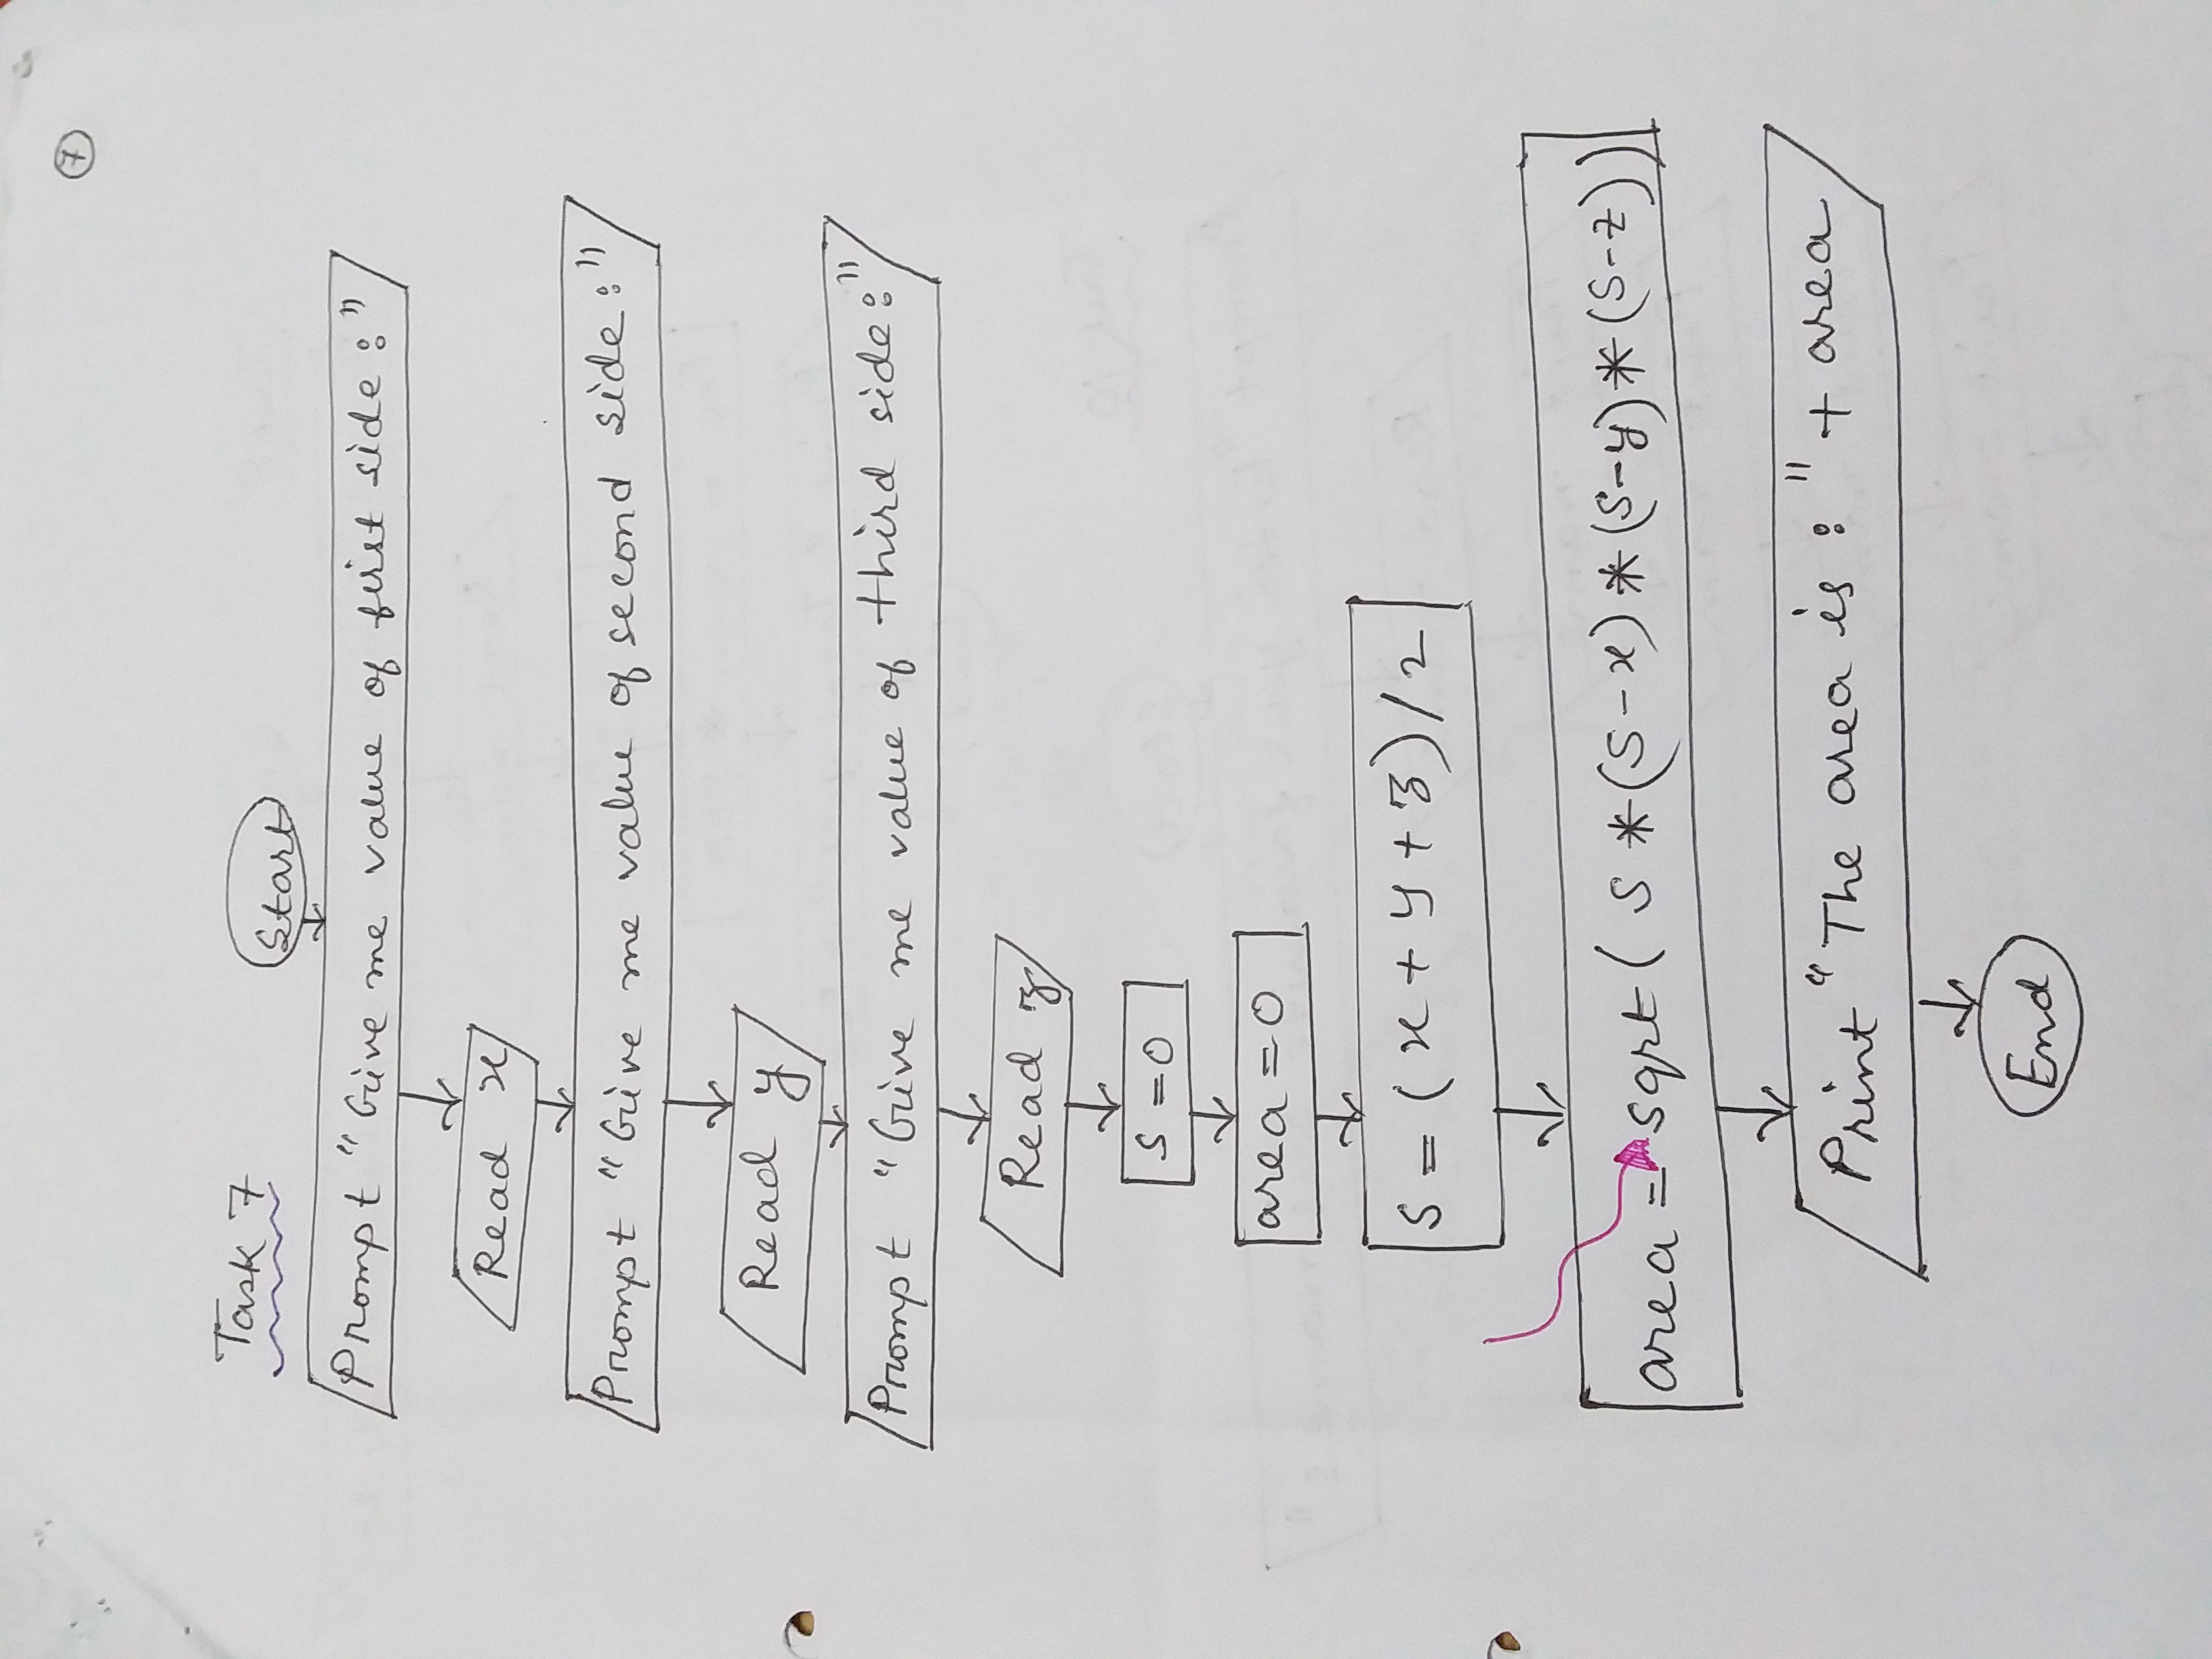 7
Task 7
Start
Prompt "Give me value of first side:"
Read x
Prompt "Give me value of second side:"
Read y
Prompt "Give me value of third side:"
Read z
S = 0
area = 0
S = (x + y + z) / 2
area = sqrt( S * (S - x) * (S - y) * (S - z))
Print "The area is : " + area
End